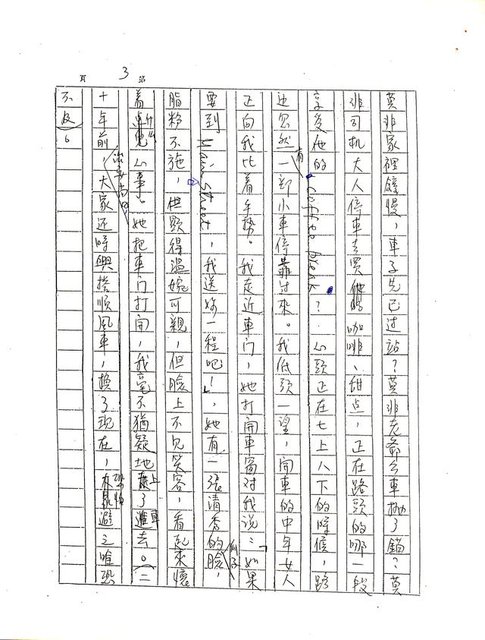 第 3 頁
莫非家裡鐘慢,車子先已过站?莫非老爺公車抛了錨?莫
非司机大人停車去買他的咖啡、甜点,正在路頭的哪一段
享受他的 coffee break?心頭正在七上八下的時候,路
边忽然有一部小車停靠过来。我低頭一望,開車的中年女人
正向我比着手勢。我走近車门,她打開車窗对我说:「如果
要到 Main street,我送妳一程吧!」她有一張清秀的臉,
脂粉不施,也顯得溫婉可親,但臉上不見笑容,看起來懷
着心事。她把車门打開,我毫不猶疑地上了車。(二
十年前大家还時興搭順風車,換了現在,避之唯恐
不及)。